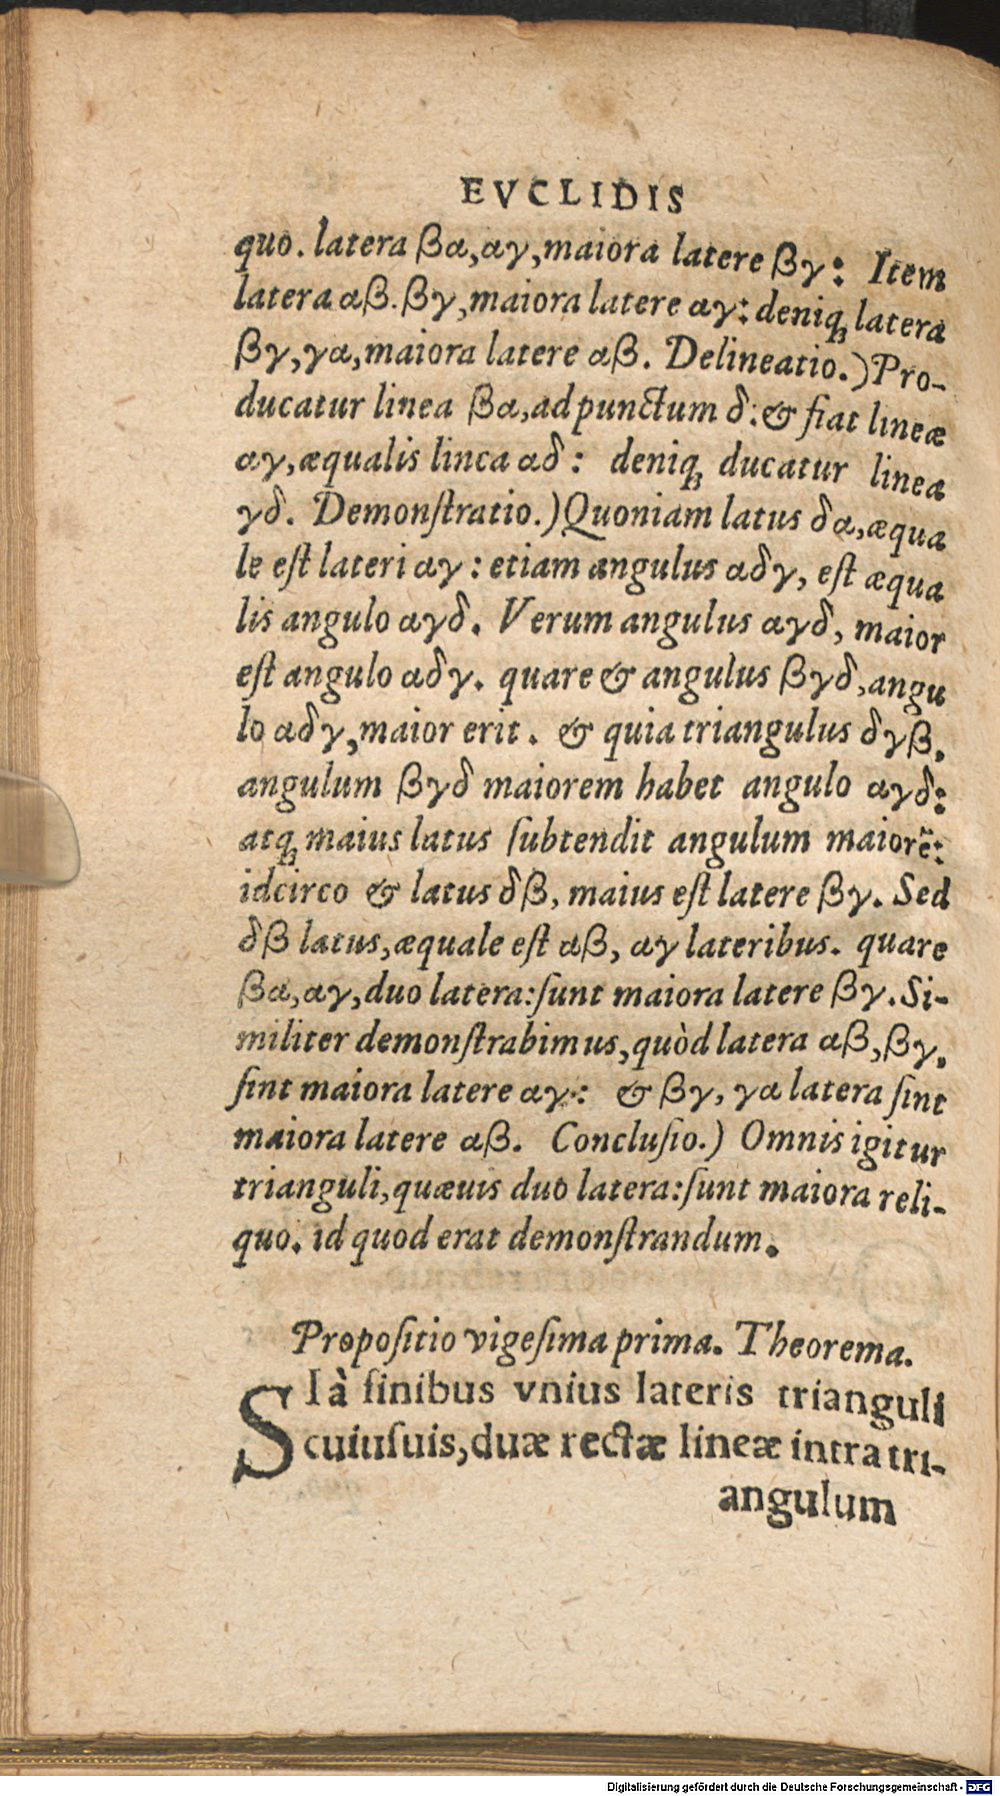 EVCLIDIS
quo. latera βα, αγ, maiora latere βγ: Item
latera αβ. βγ, maiora latere αγ: deniq; latera
βγ, γα, maiora latere αβ. Delineatio.) Pro-
ducatur linea βα, ad punctum δ: & fiat lineæ
αγ, æqualis linea αδ: deniq; ducatur linea
γδ. Demonſtratio.) Quoniam latus δα, æqua
le eſt lateri αγ: etiam angulus αδγ, eſt æqua
lis angulo αγδ. Verum angulus αγδ, maior
eſt angulo αδγ. quare & angulus βγδ, angu
lo αδγ, maior erit. & quia triangulus δγβ,
angulum βγδ maiorem habet angulo αγδ:
atq; maius latus ſubtendit angulum maiorẽ:
idcirco & latus δβ, maius eſt latere βγ. Sed
δβ latus, æquale eſt αβ, αγ lateribus. quare
βα, αγ, duo latera: ſunt maiora latere βγ. Si-
militer demonſtrabimus, quòd latera αβ, βγ,
ſint maiora latere αγ: & βγ, γα latera ſint
maiora latere αβ. Concluſio.) Omnis igitur
trianguli, quæuis duo latera: ſunt maiora reli-
quo. id quod erat demonſtrandum.
Propoſitio vigeſima prima. Theorema.
SIà finibus vnius lateris trianguli
cuiuſuis, duæ rectæ lineæ intra tri-
angulum
Digitalisierung gefördert durch die Deutsche Forschungsgemeinschaft - DFG